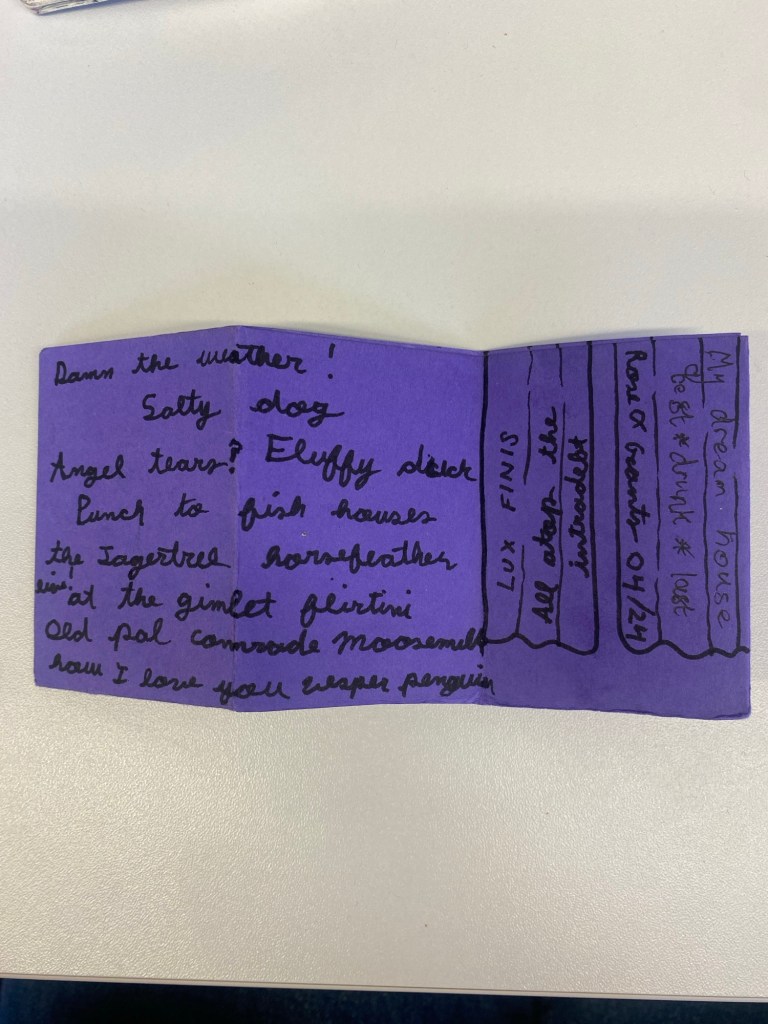 Damn the weather!
Salty dog
Angel tears? Fluffy duck
Punch to fish houses
the Jagertree horsefeather
live at the gimlet flirtini
Old pal comrade Moosemilk
how I love you vesper penguin
LUX FINIS
All atop the
Rose O' Grants 04/24
best * drunk * lost
My dream house